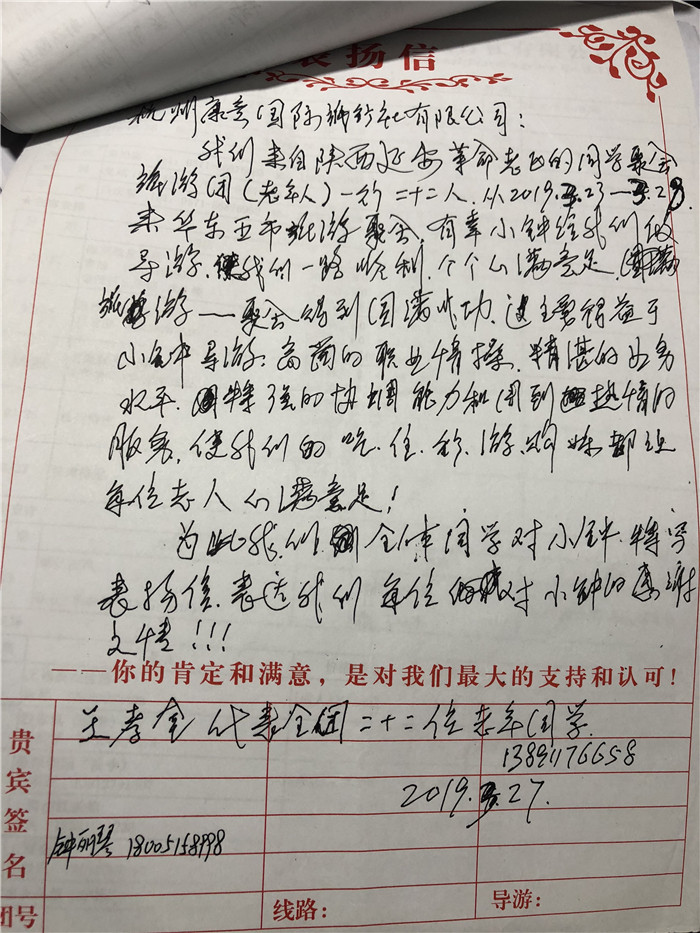 表扬信
杭州康意国际旅行社有限公司：
我们来自陕西延安革命老区的同学聚会
旅游团（老年人）一行二十二人，从2019.3.23—3.28.
来华东五市旅游聚会，有幸小钟给我们做
导游，使我们一路顺利，个个心满意足，圆满
旅游——聚会得到圆满成功，这主要得益于
小钟导游：高尚的职业情操，精湛的业务
水平，特强的协调能力和周到热情的
服务，使我们的吃、住、行、游、购、娱都让
每位老人心满意足！
为此我们全体同学对小钟特写
表扬信，表达我们每位对小钟的感谢
之情！！！
——你的肯定和满意，是对我们最大的支持和认可！
贵宾签名
王孝金代表全团二十二位老年同学
13891176658
2019.3.27.
钟丽琴 18005158998
团号
线路：
导游：